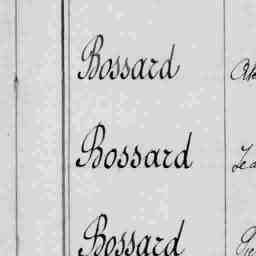 Bossard
Bossard
Bossard